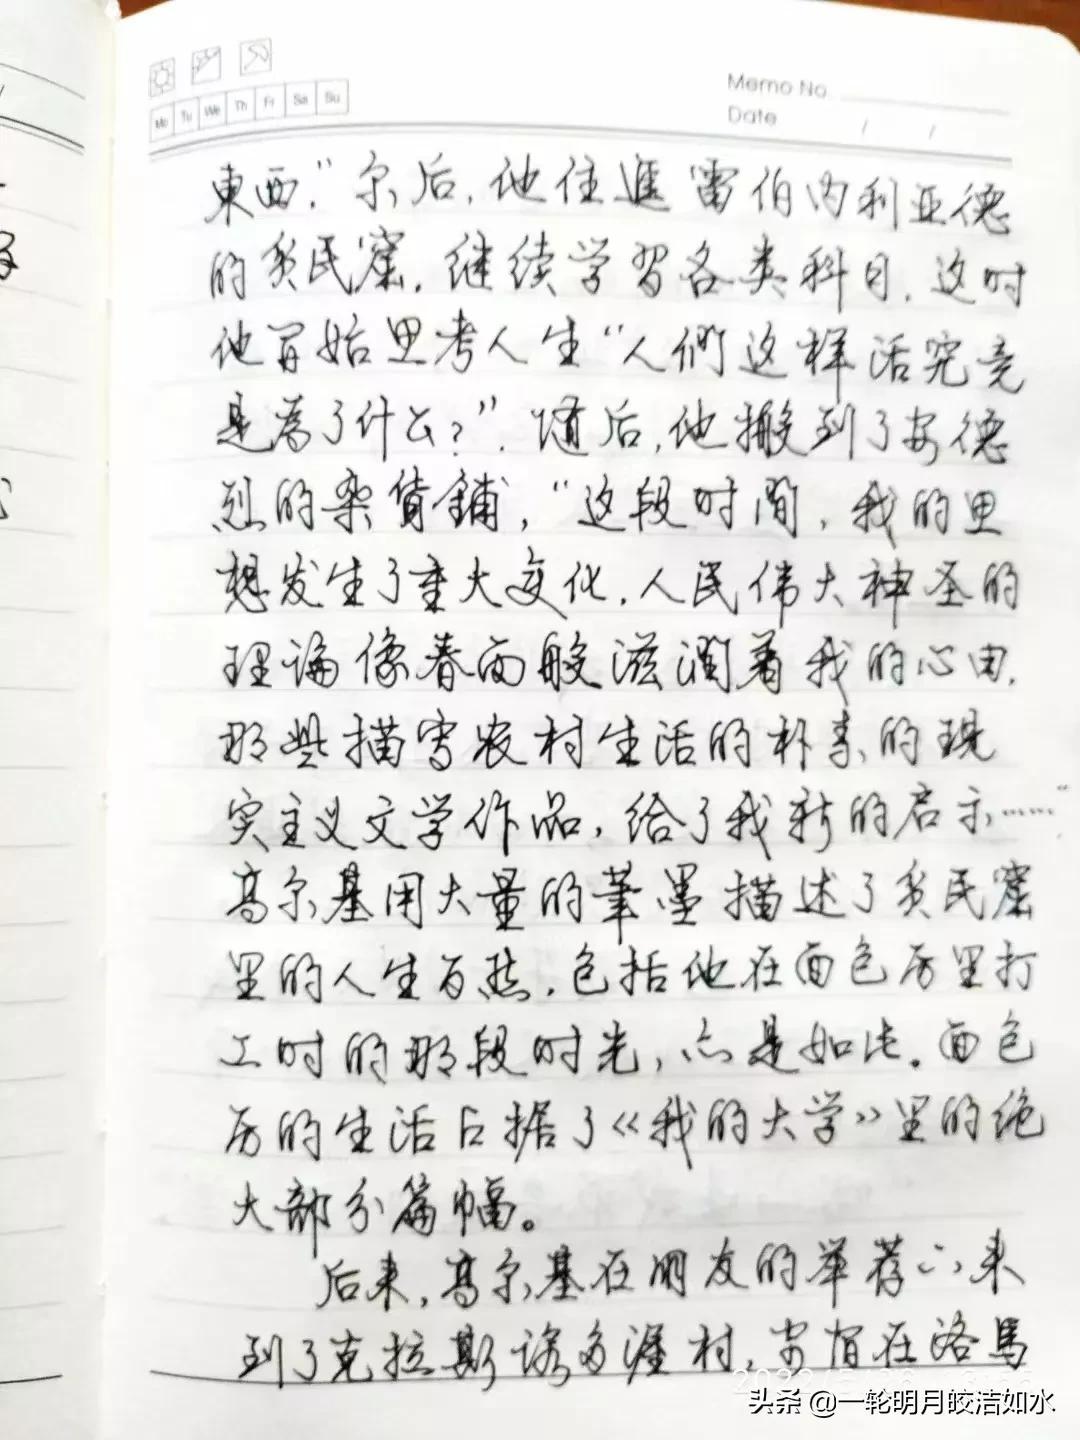 Mo Tu We Th Fr Sa Su
Memo No.
Date / /
東西.”尔后,他住進雷伯内利亚德
的贫民窟.继续学習各类科目.这时
他开始思考人生“人們这样活究竟
是為了什么?”.随后,他搬到了安德
烈的杂貨鋪,“这段时间,我的思
想发生了重大变化.人民伟大神圣的
理论像春雨般滋潤着我的心田.
那些描写农村生活的朴素的现
实主义文学作品,给了我新的启示……”
高尔基用大量的筆墨描述了贫民窟
里的人生百态.包括他在面包房里打
工时的那段时光,亦是如此。面包
房的生活占据了《我的大学》里的绝
大部分篇幅。
后来,高尔基在朋友的举荐下,来
到了克拉斯诺多涯村,安宿在洛馬
头条 @一轮明月皎洁如水